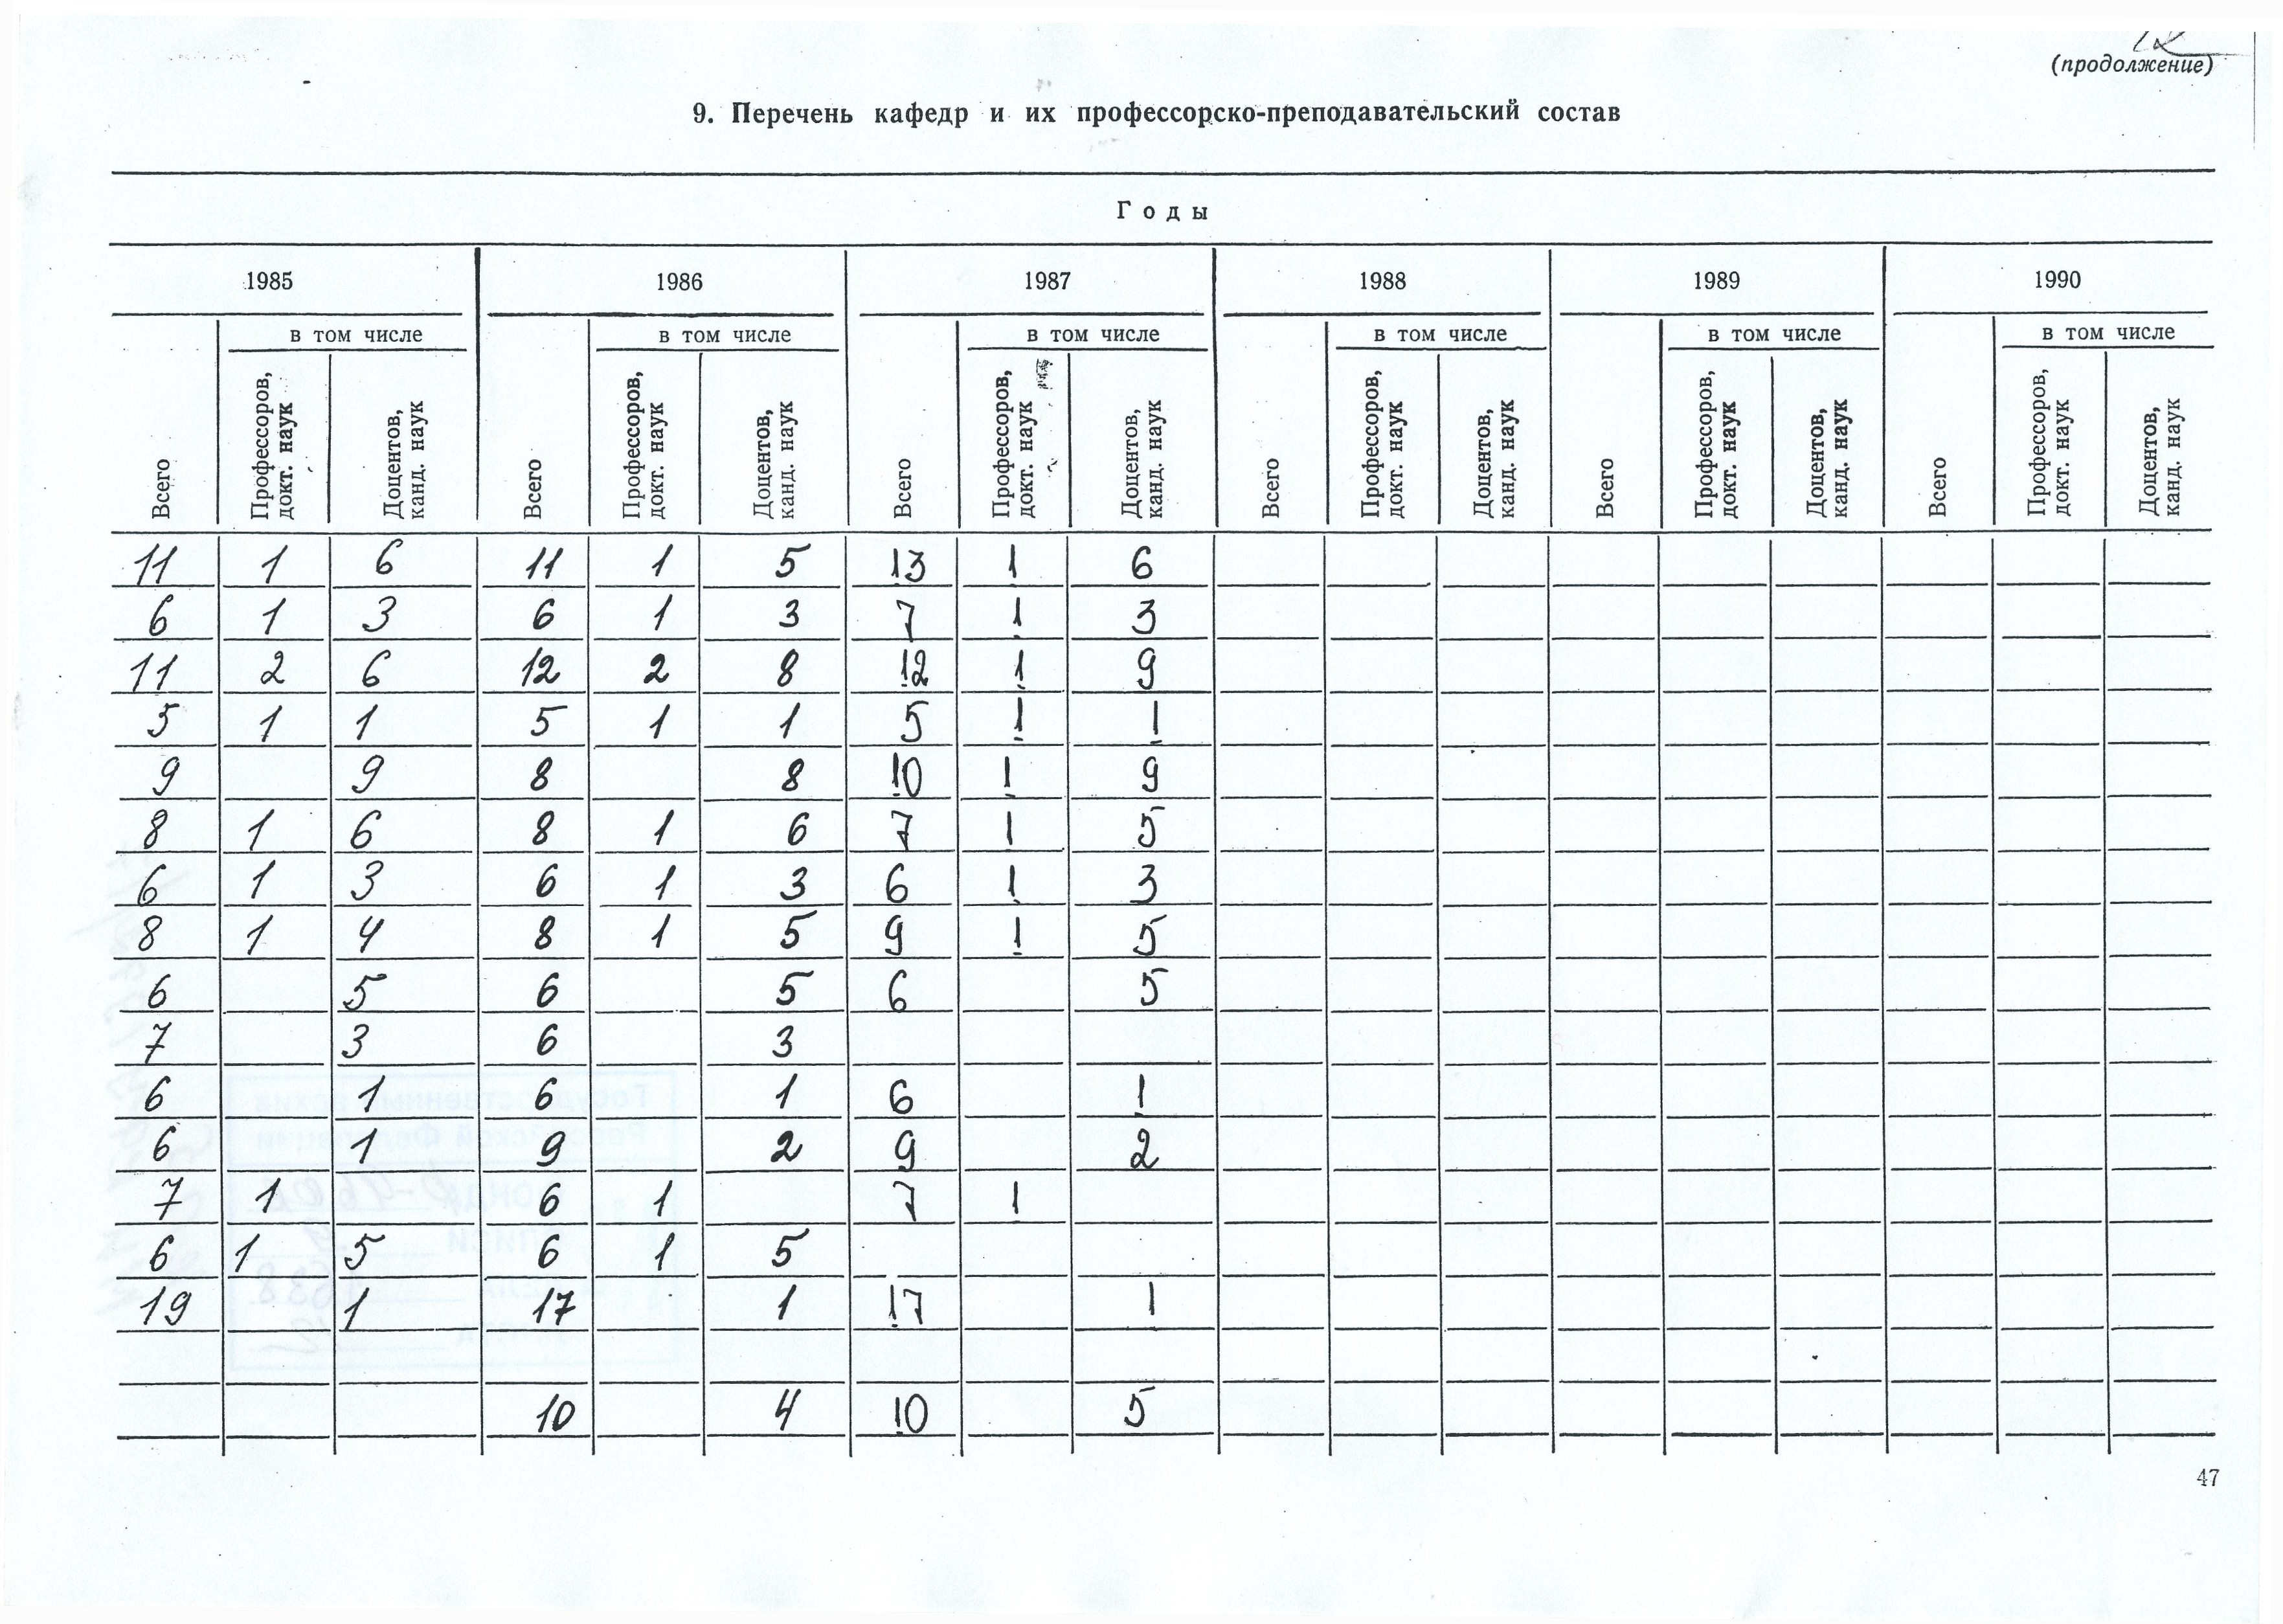 (продолжение)
9. Перечень кафедр и их профессорско-преподавательский состав
Годы
1985 1986 1987 1988 1989 1990
в том числе в том числе в том числе в том числе в том числе в том числе
Всего Профессоров, докт. наук Доцентов, канд. наук Всего Профессоров, докт. наук Доцентов, канд. наук Всего Профессоров, докт. наук Доцентов, канд. наук Всего Профессоров, докт. наук Доцентов, канд. наук Всего Профессоров, докт. наук Доцентов, канд. наук Всего Профессоров, докт. наук Доцентов, канд. наук
11 1 6 11 1 5 13 1 6
6 1 3 6 1 3 7 1 3
11 2 6 12 2 8 12 1 9
5 1 1 5 1 1 5 1 1
9 9 8 8 10 1 9
8 1 6 8 1 6 7 1 5
6 1 3 6 1 3 6 1 3
8 1 4 8 1 5 9 1 5
6 5 6 5 6 5
7 3 6 3
6 1 6 1 6 1
6 1 9 2 9 2
7 1 6 1 7 1
6 1 5 6 1 5
19 1 17 1 17 1
10 4 10 5
47